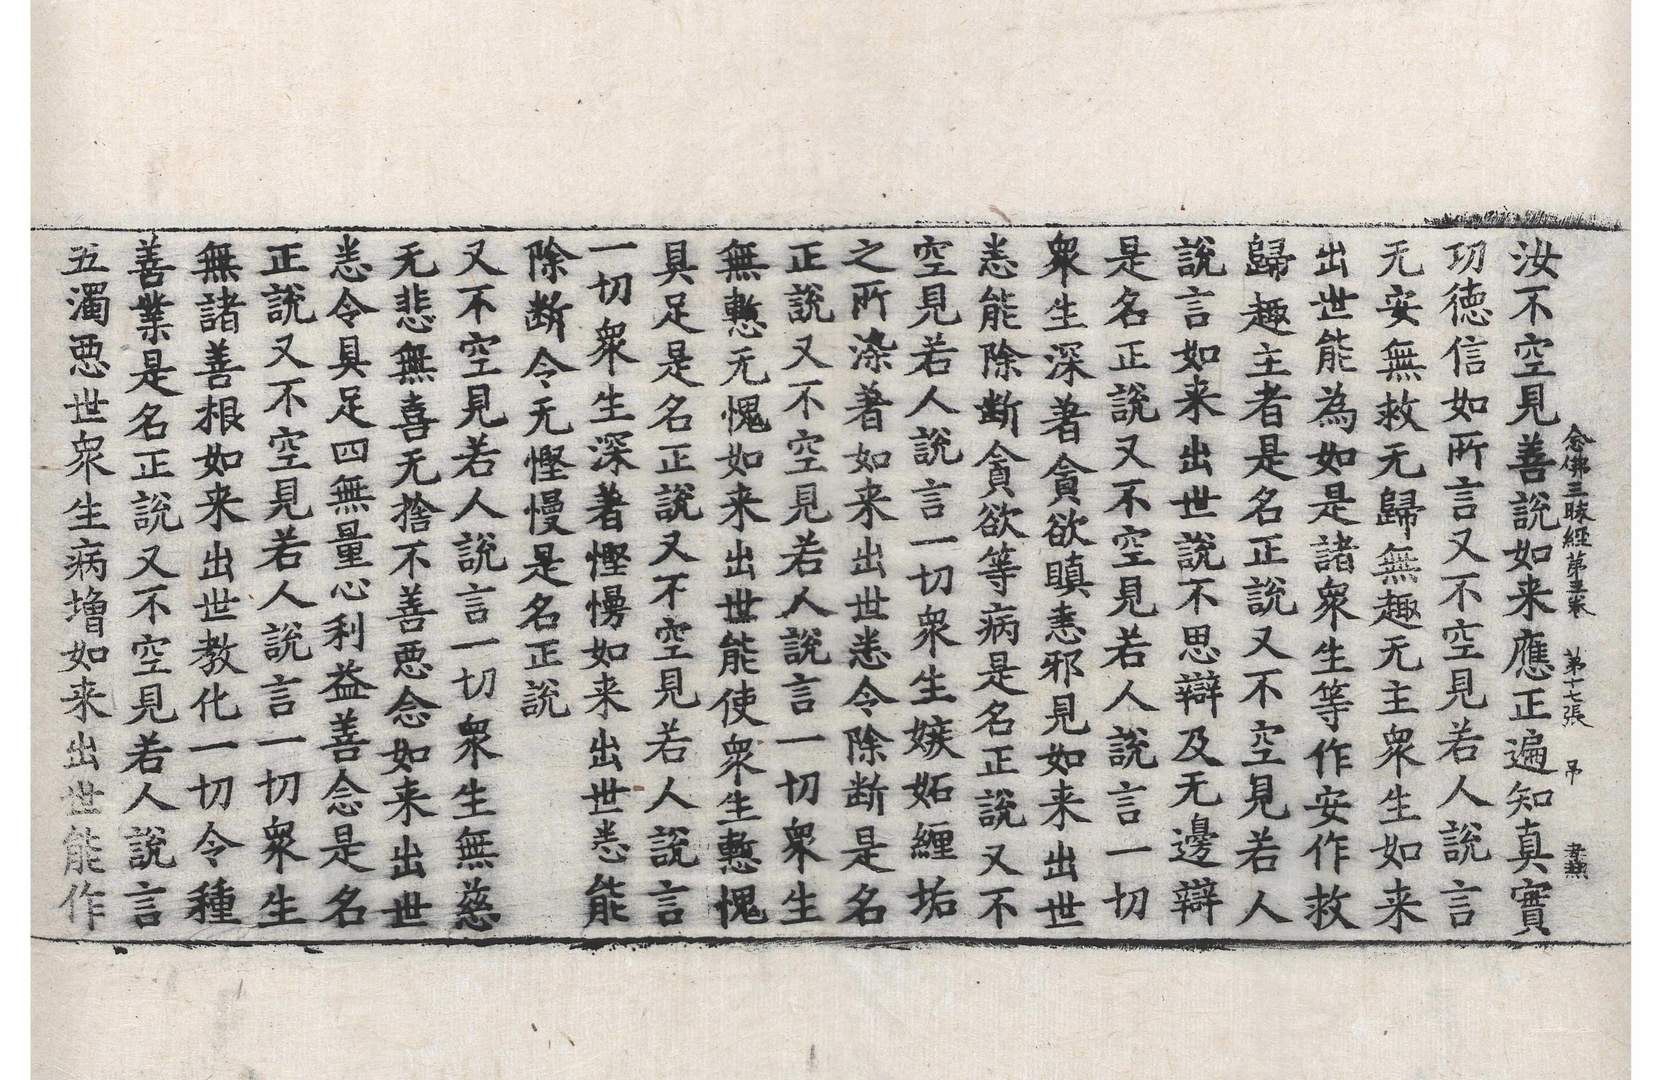 念佛三昧經苐五卷 苐十七張 吊
汝不空見善說如来應正遍知真實
功徳信如所言又不空見若人說言
无安無救无歸無趣无主衆生如来
出世能為如是諸衆生等作安作救
歸趣主者是名正說又不空見若人
說言如来出世說不思辯及无邊辯
是名正說又不空見若人說言一切
衆生深著貪欲瞋恚邪見如来出世
悉能除断貪欲等病是名正說又不
空見若人說言一切衆生嫉妬纒垢
之所染著如来出世悉令除断是名
正說又不空見若人說言一切衆生
無慙无愧如来出世能使衆生慙愧
具足是名正說又不空見若人說言
一切衆生深著慳慢如来出世悉能
除断令无慳慢是名正說
又不空見若人說言一切衆生無慈
无悲無喜无捨不善惡念如来出世
悉令具足四無量心利益善念是名
正說又不空見若人說言一切衆生
無諸善根如来出世教化一切令種
善業是名正說又不空見若人說言
五濁惡世衆生病增如来出世能作